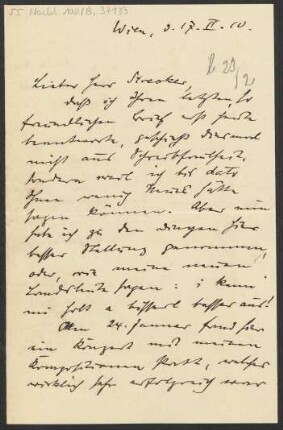 55 Nachl 100/B, 37135
Wien, d. 17. II. 10.
Lieber Herr Strecker,
daß ich Ihren letzten, so
freundlichen Brief erst heute
beantworte, geschieht diesmal
nicht aus Schreibfaulheit,
sondern weil ich bis dato
Ihnen wenig Neues hätte
sagen können. Aber nun
habe ich zu den Dingen hier
besser Stellung genommen,
oder, wie meine neuen
Landsleute sagen: i kenn
mi holt a bisserl besser aus!
Am 24. Januar fand hier
ein Konzert mit meinen
Kompositionen statt, welches
wirklich sehr erfolgreich war